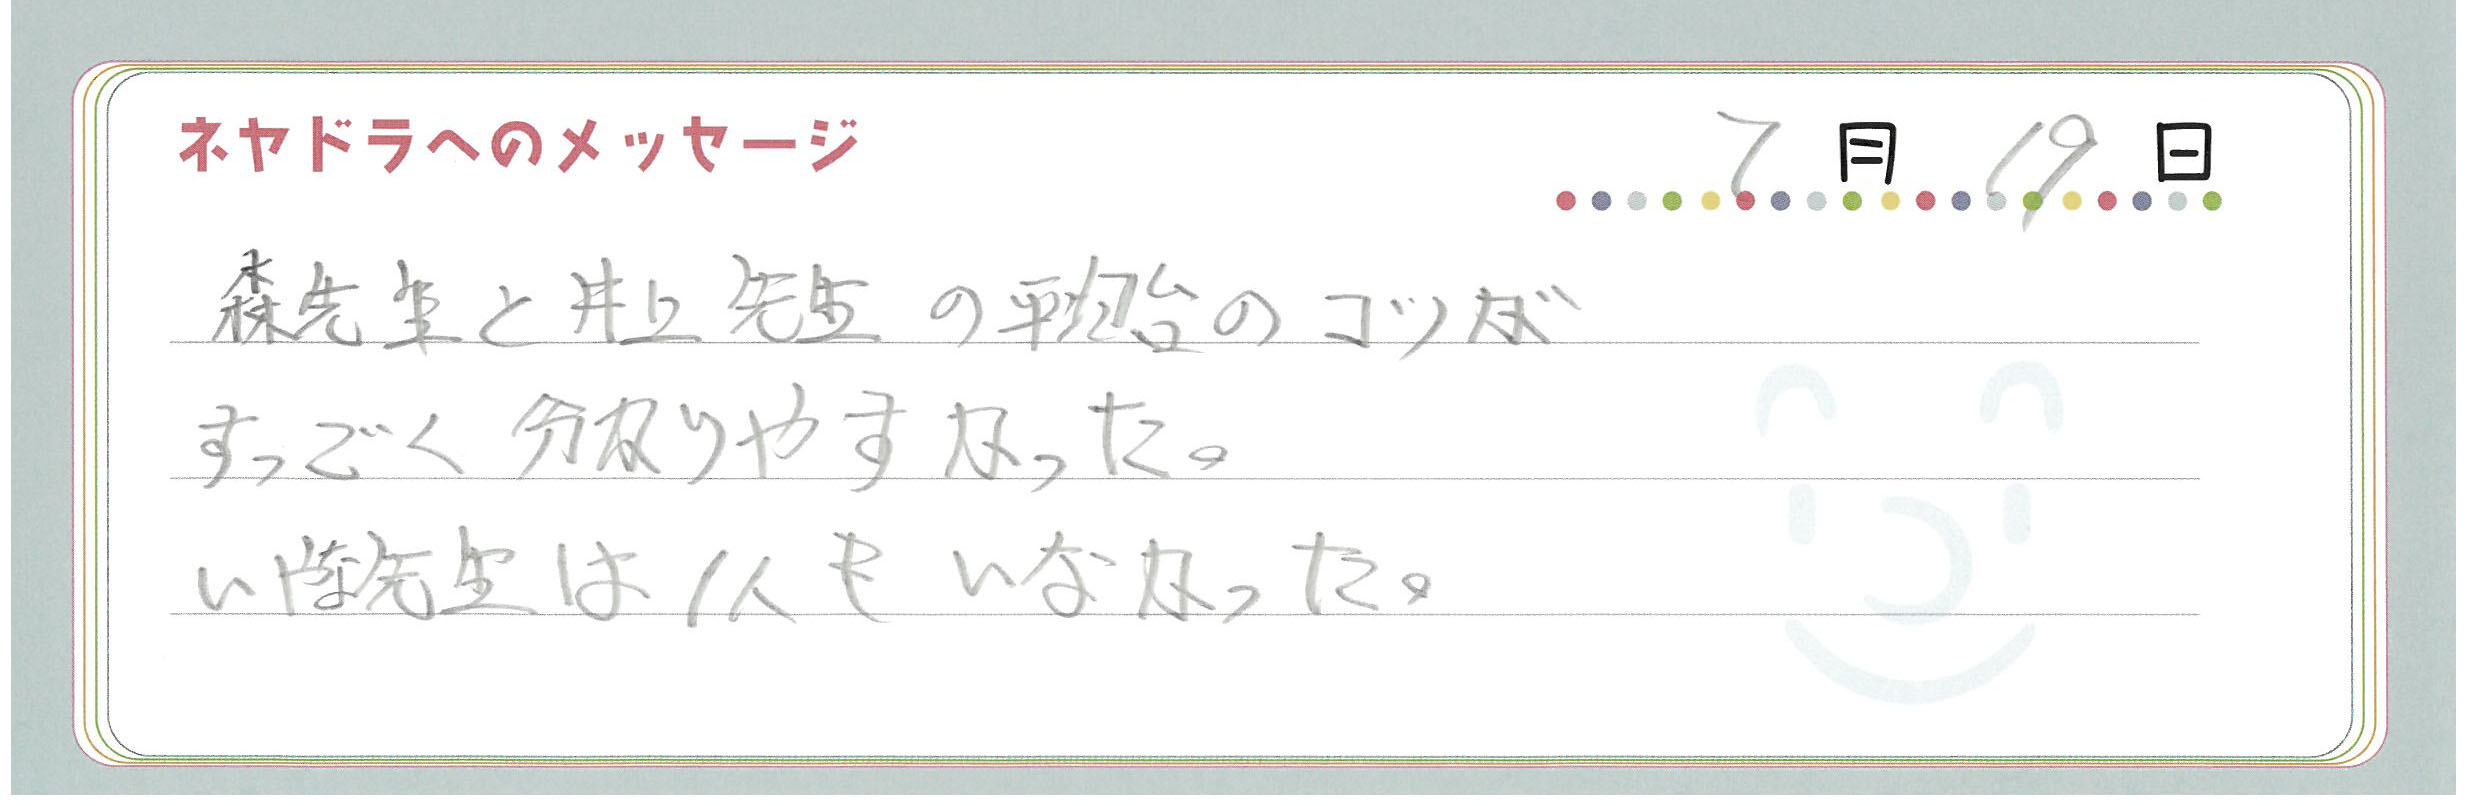 ネヤドラへのメッセージ
7月19日
森先生と井上先生の のコツが
すっごく分かりやすかった。
いやな先生は1人もいなかった。